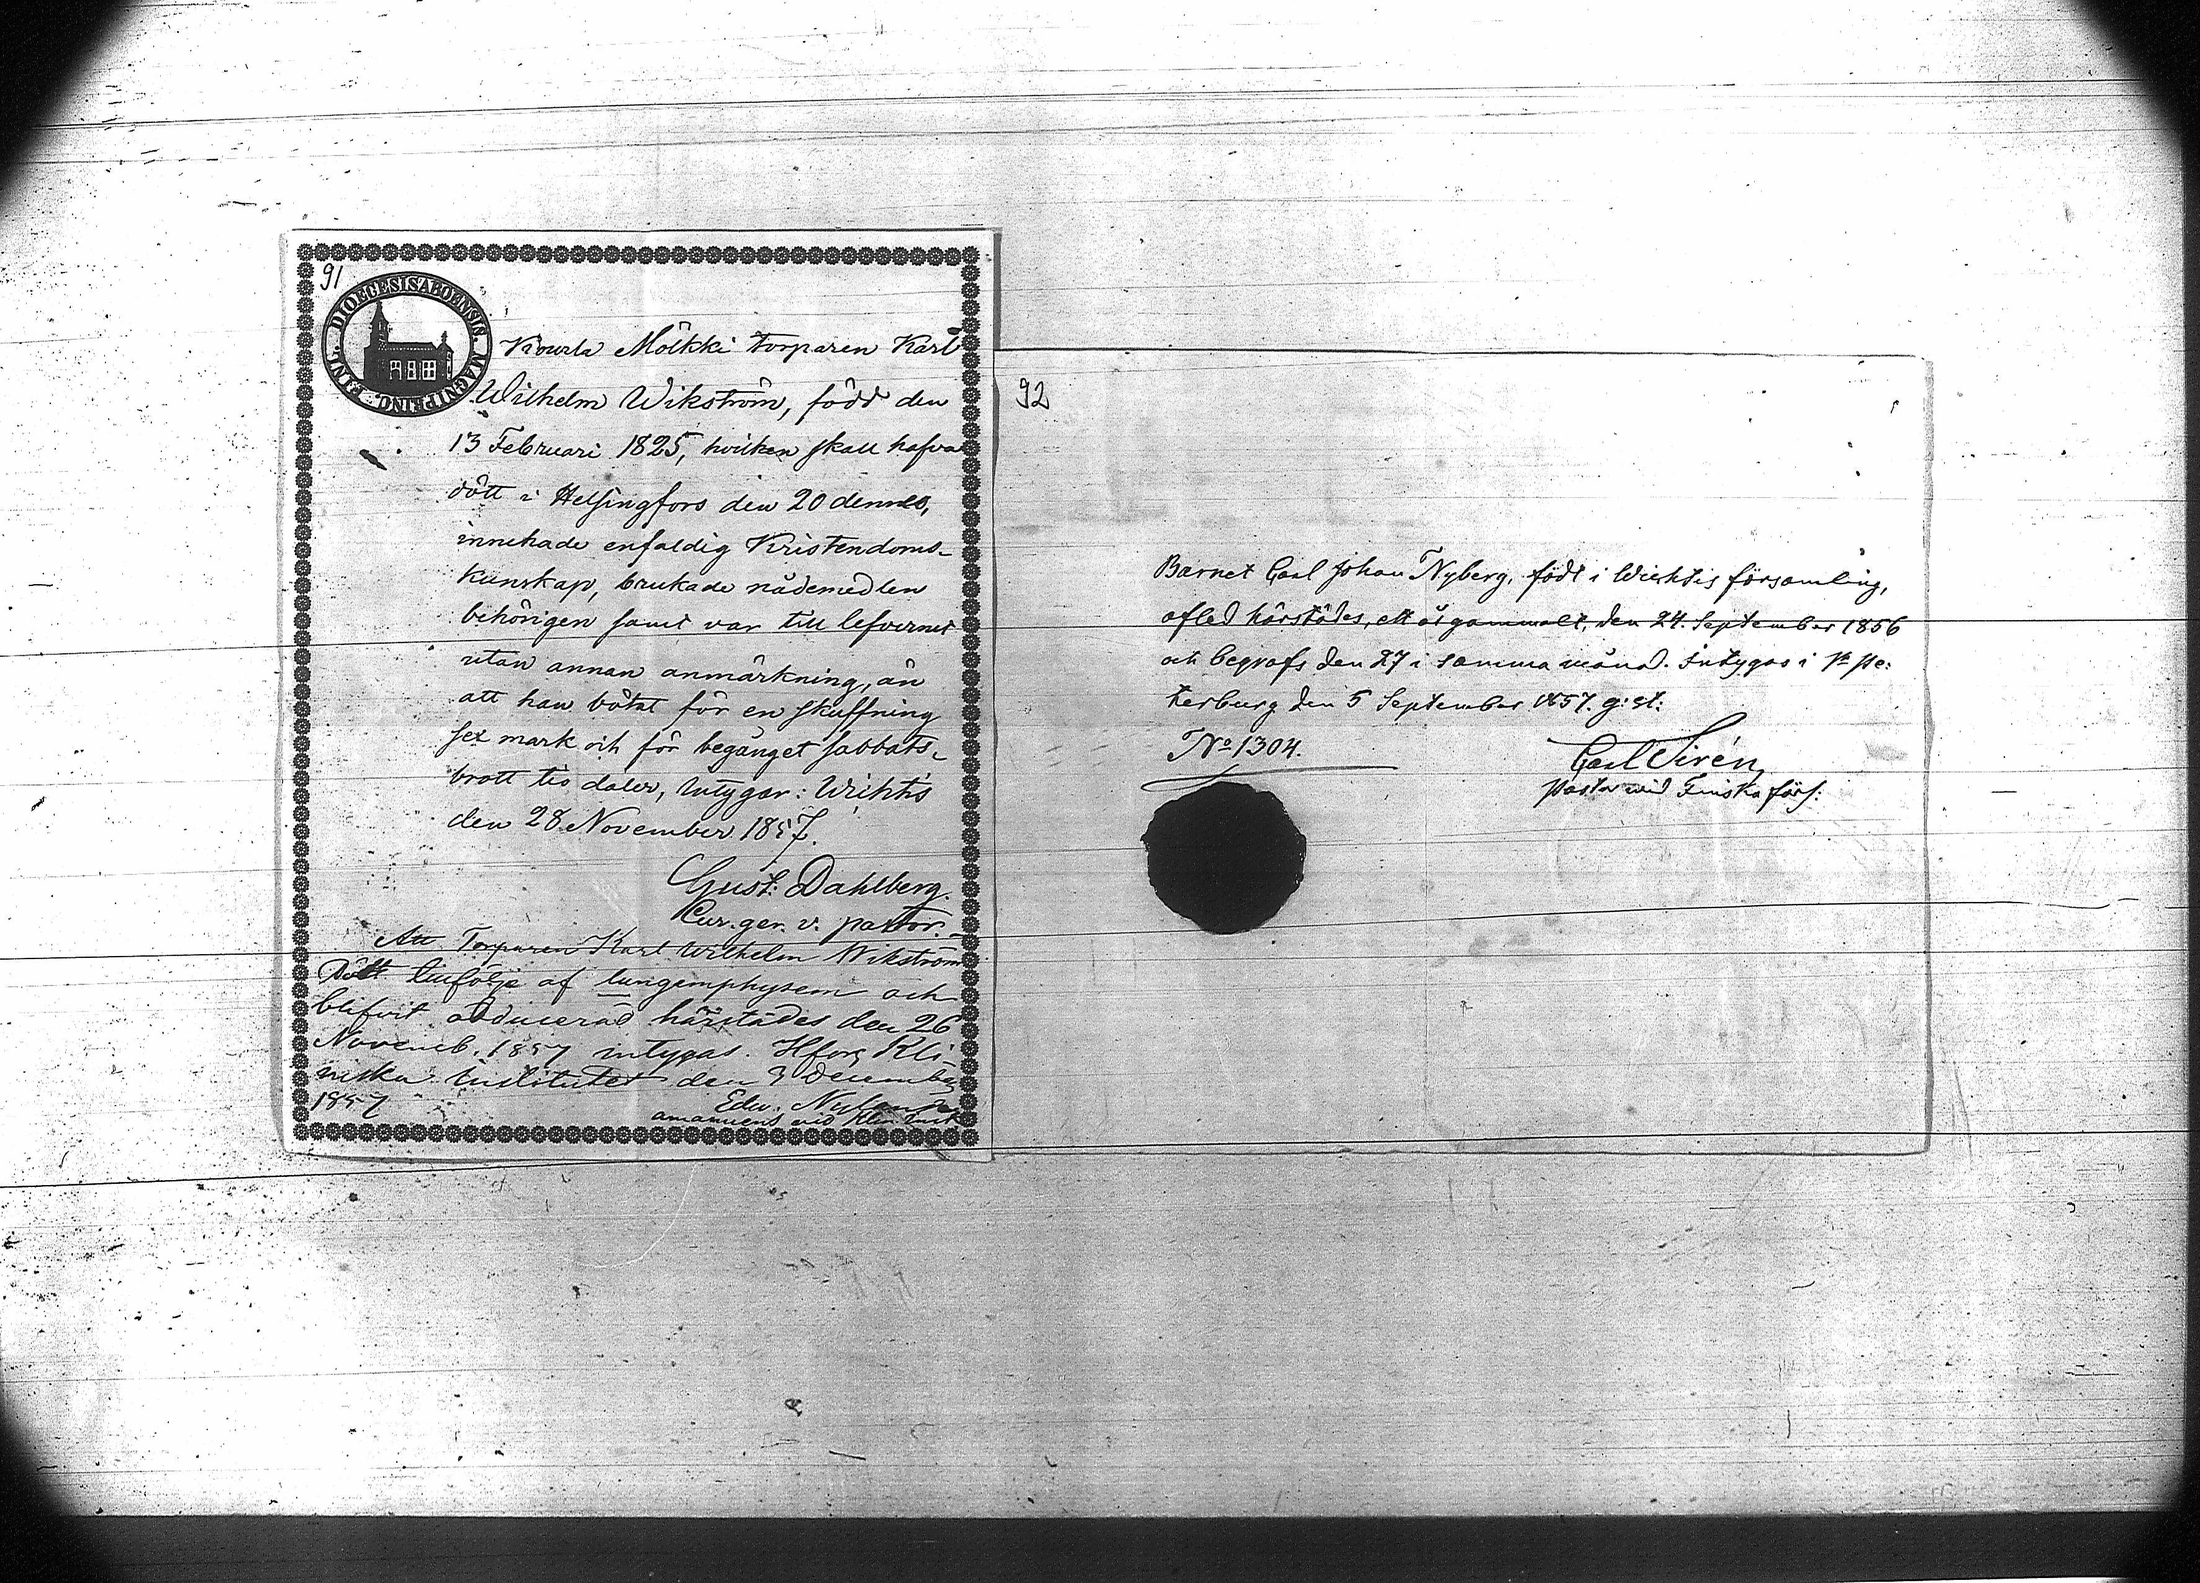 91
DIOECESIS ABOENSIN. MAGNI PRINC. FINL.
Kourla Mölkki torparen Karl
Wilhelm Wikström, född den
13 Februari 1825, hvilken skall hafva
dött i Helsingfors den 20 dennes,
innehade enfaldig Kristendoms-
kunskap, brukade nådemedlen
behörigen samt var till lefvernet
utan annan anmärkning, än
att han bötat för en skuffning
sex mark och för begånget sabbats-
brott tio daler, intygar: Wichtis
den 28 November 1857.
Gust: Dahlberg.
Cur. ger. v. pastor.
Att Torparen Karl Wilhelm Wikström
Dött tillfölje af lungemphysem och
blifvit obducerad härstädes den 26
Novemb. 1857 intygas. Hfors Kli-
niska Institutet den 3 December
1857
Edw. Nylander
amanuens vid Klin. Inst.
92
Barnet Carl Johan Nyberg, född i Wichtis församling,
afled härstädes, ett år gammalt, den 24. September 1856
och begrafs den 27 i samma månad. Intygas i St Pe:
terburg den 5 September 1857. g: st:
No 1304.
Carl Sirén,
pastor vid Finska förs: